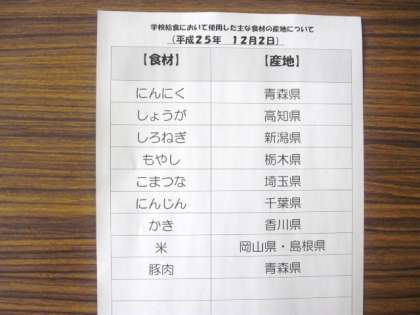 学校給食において使用した主な食材の産地について
(平成25年 12月2日)
【食材】 【産地】
にんにく 青森県
しょうが 高知県
しろねぎ 新潟県
もやし 栃木県
こまつな 埼玉県
にんじん 千葉県
かき 香川県
米 岡山県・島根県
豚肉 青森県